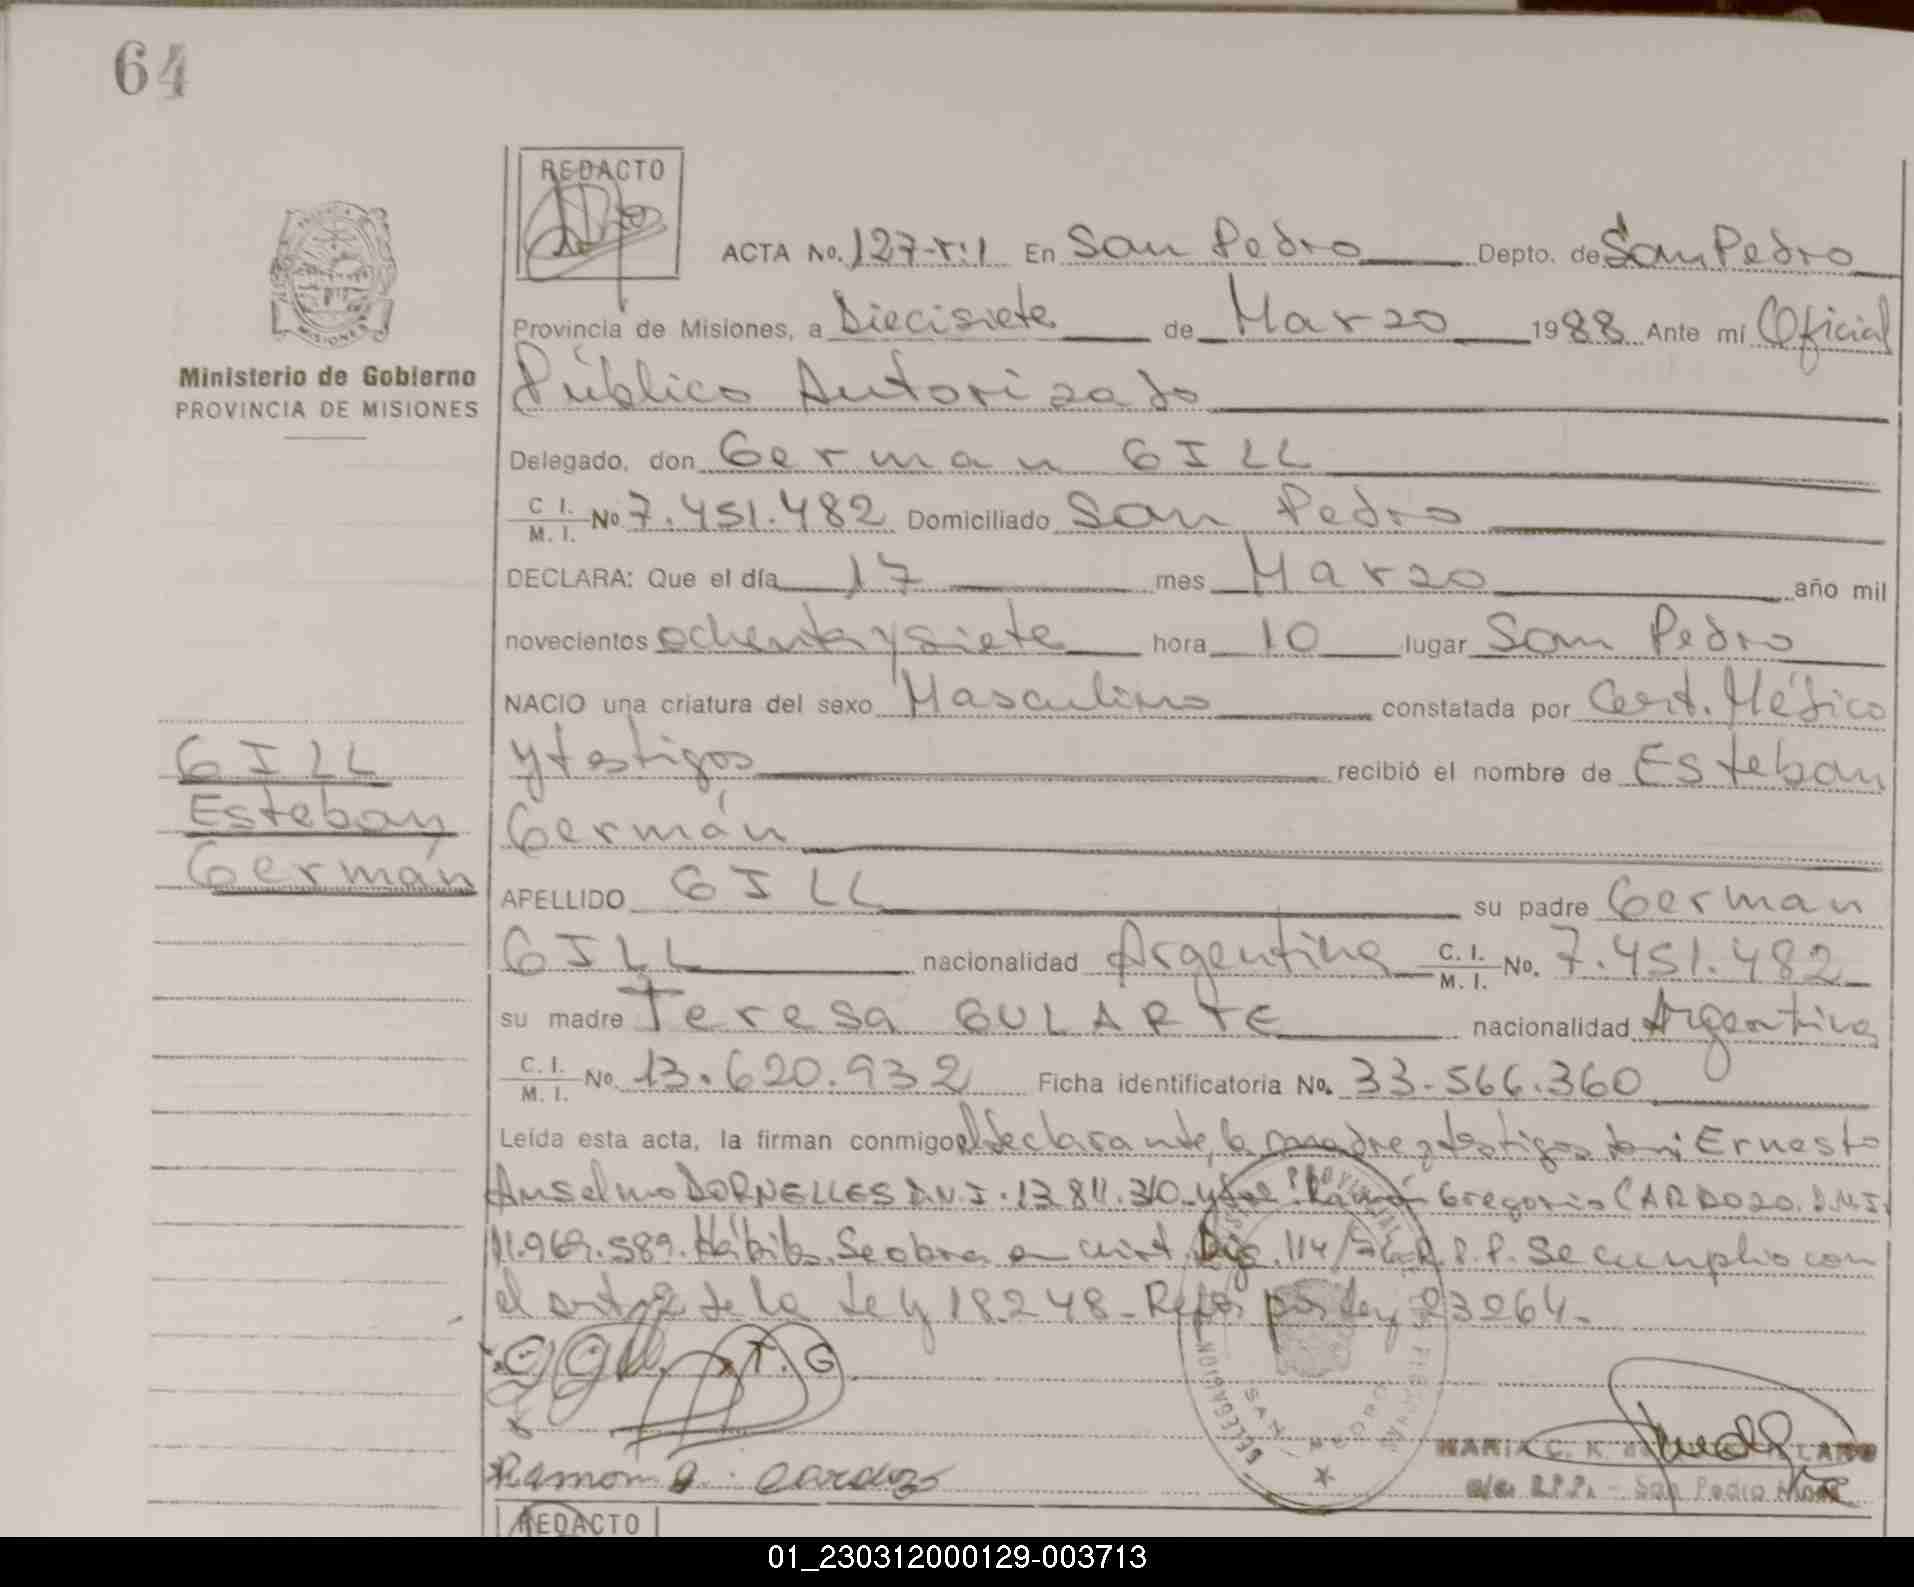 64
REDACTO
ACTA No. 127-T:1 En San Pedro Depto. de San Pedro
Provincia de Misiones, a Diecisiete de Marzo 1988 Ante mí Oficial
Público Autorizado
Ministerio de Gobierno
PROVINCIA DE MISIONES
MISIONES
Delegado, don German GILL
C. I. / M. I. No 7.451.482 Domiciliado San Pedro
DECLARA: Que el día 17 mes Marzo año mil
novecientos ochenta y siete hora 10 lugar San Pedro
NACIO una criatura del sexo Masculino constatada por Cert. Médico
y testigos recibió el nombre de Esteban
Germán
GILL
Esteban
Germán
APELLIDO GILL su padre German
GILL nacionalidad Argentina C. I. / M. I. No. 7.451.482
su madre Teresa GULARTE nacionalidad Argentina
C. I. / M. I. No 13.620.932 Ficha identificatoria No. 33.566.360
Leída esta acta, la firman conmigo el declarante, la madre y testigos don: Ernesto
Anselmo DORNELLES D.N.I. 13.811.310 y don Ramón Gregorio CARDOZO. D.N.I.
11.969.589. Hábiles. Se obra en virt. Dis. 114/ R.P.P. Se cumplio con
el art. 2 de la Ley 18248- por Ley 23264.-
T. G
Ramon G. Cardozo
DELEGACION
SAN PEDRO
MARIA C. K. de
R.P.P. - San Pedro Mnes
REDACTO
01_230312000129-003713